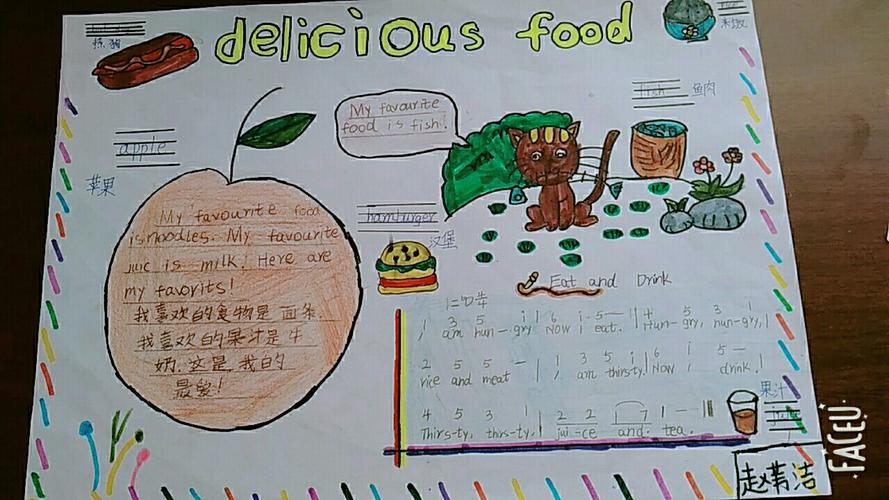 delicious food
热狗
米饭
fish 鱼肉
apple
苹果
My favourite
food is fish!
hamburger
汉堡
My favourite food
is noodles. My favourite
juic is milk! Here are
my favorits!
我喜欢的食物是面条
我喜欢的果汁是牛
奶.这是我的
最爱!
Eat and Drink
1=D 4/4
1 3 5 i | 6 i 5 — | 4 5 3 1
I am hun-gry. Now I eat. Hun-gry, hun-gry,
2 5 5 — | 1 3 5 i | 6 i 5 —
rice and meat I am thirsty. Now I drink.
4 5 3 1 | 2 2 7 1 —
Thirs-ty, thirs-ty, jui-ce and tea.
果汁
赵苇洁
FACEU